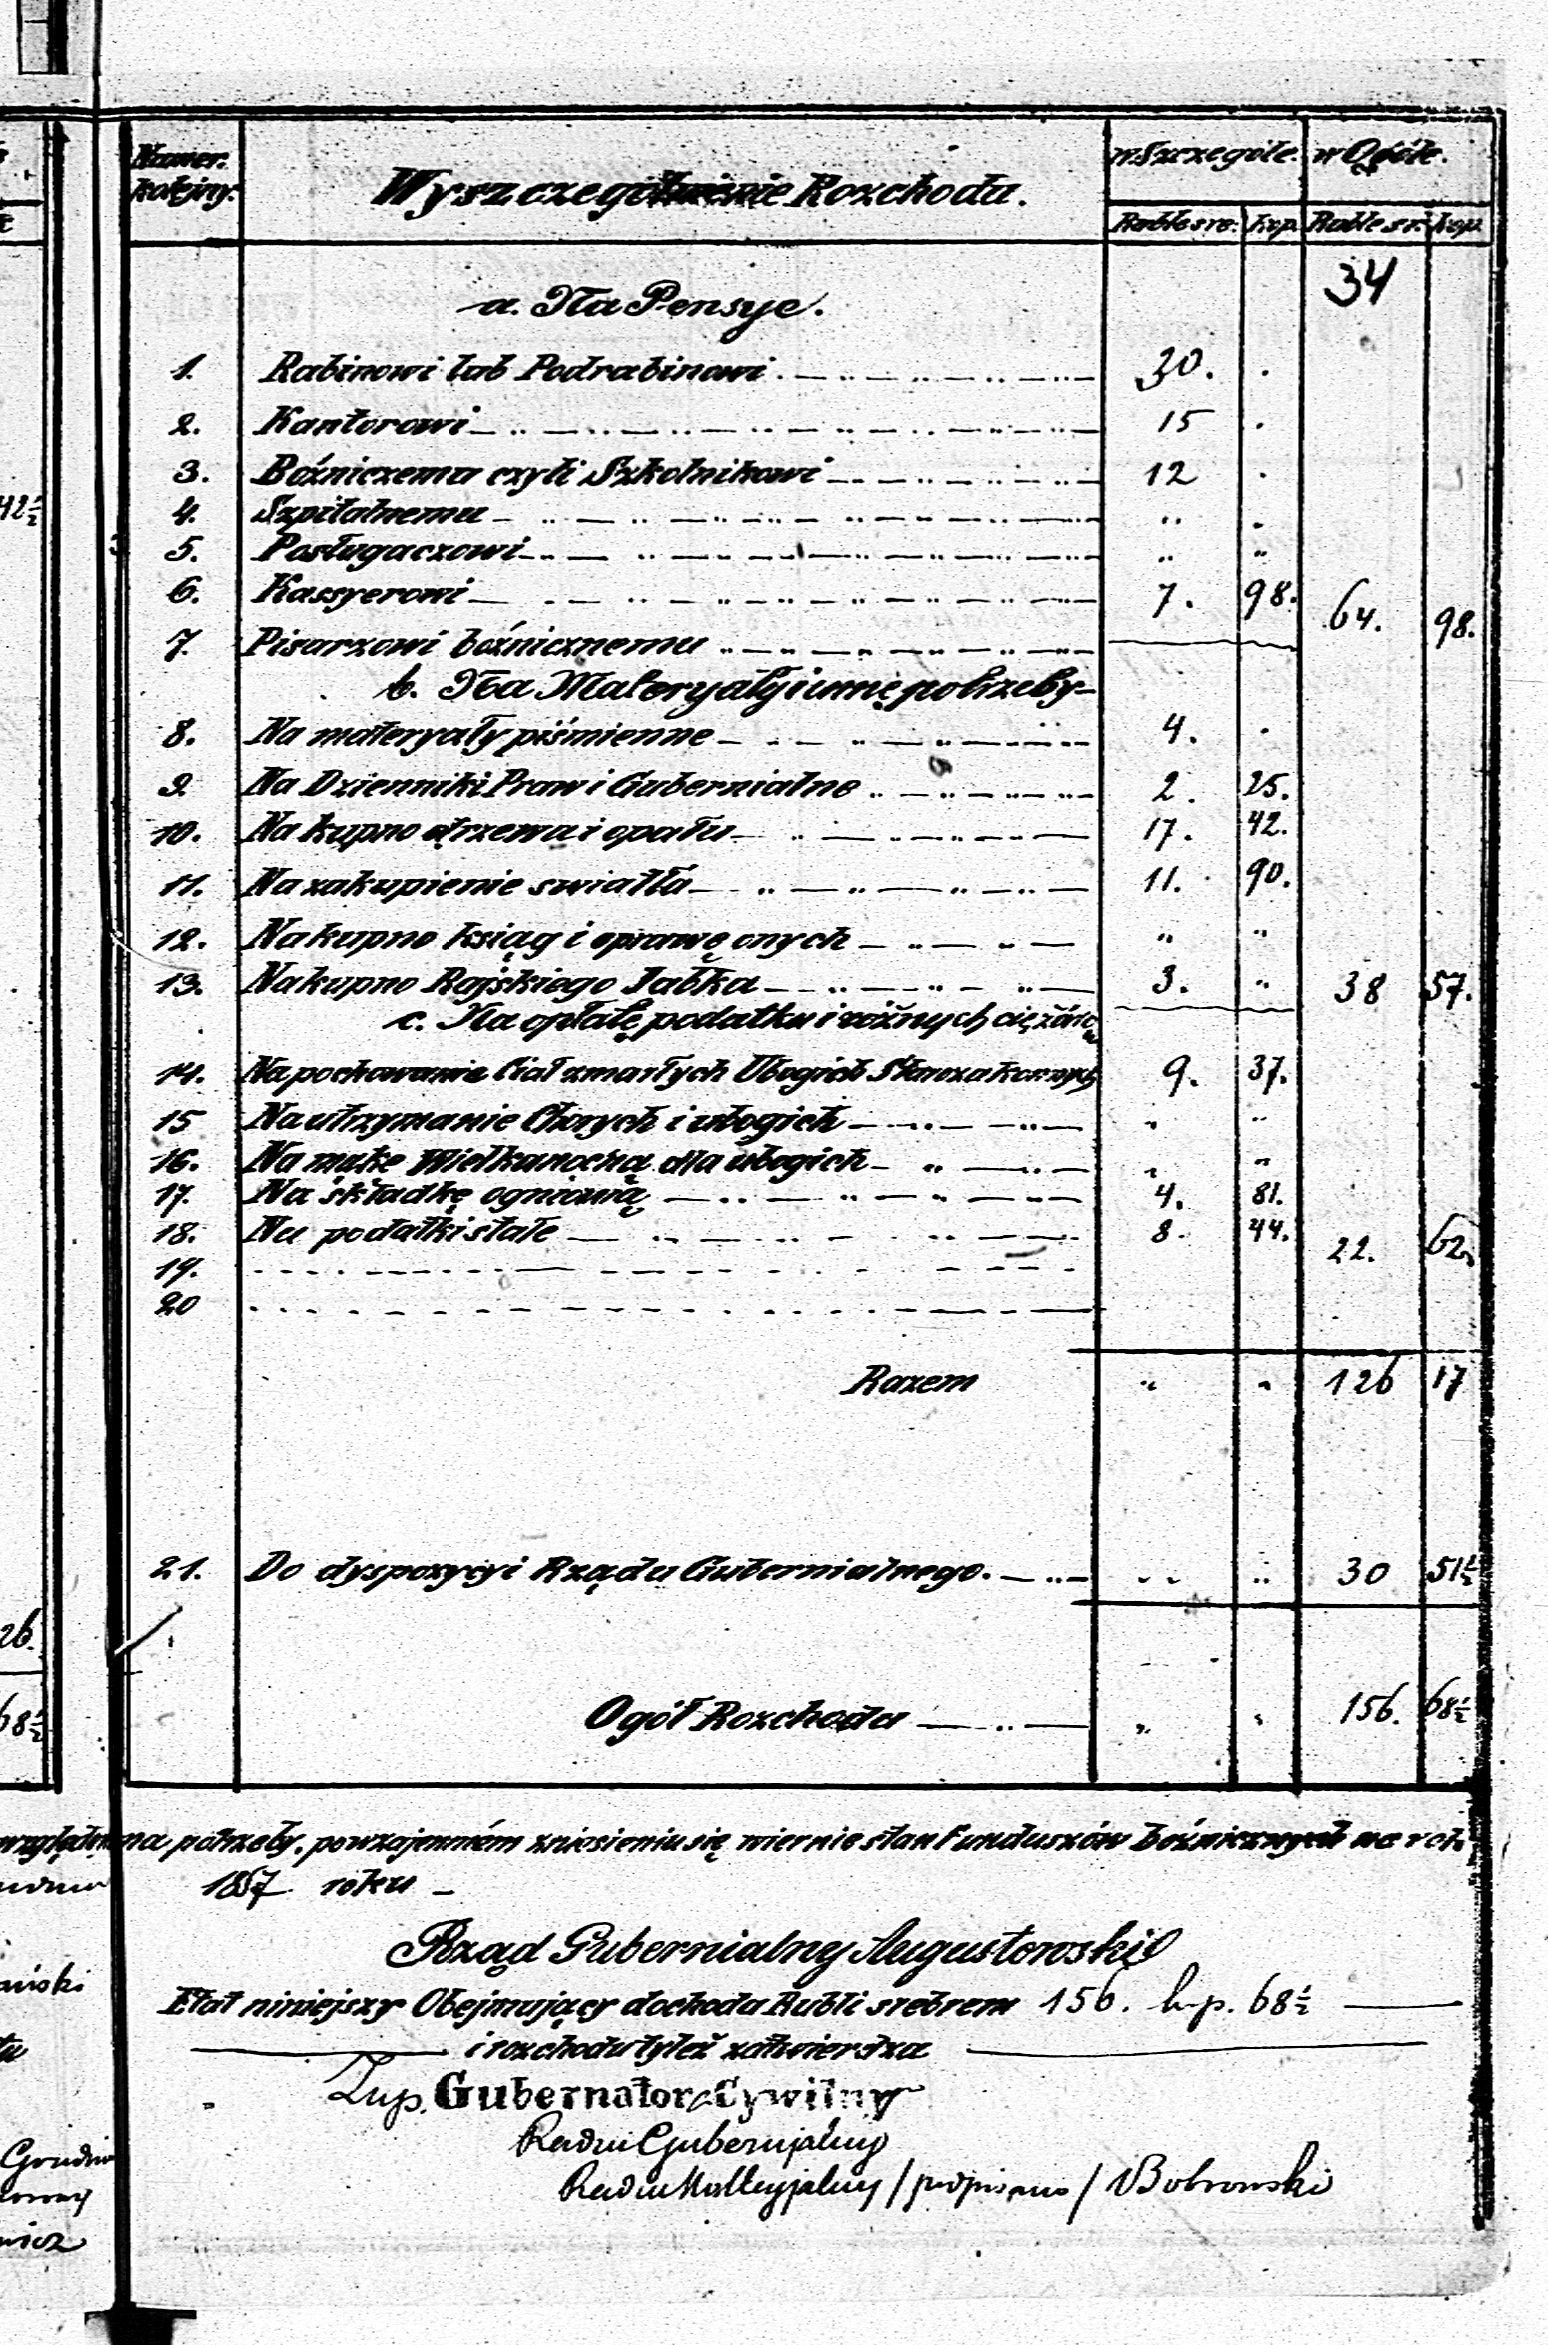 Numer kolejny. Wyszczególnienie Rozchodu. w Szczególe. w Ogóle.
Ruble sre. kop. Ruble sr. kop.
34
a. Na Pensye.
1. Rabinowi lub Podrabinowi 30. .
2. Kantorowi 15 .
3. Bóźniczemu czyli Szkolnikowi 12 .
4. Szpitalnemu „ „
5. Posługaczowi „ „
6. Kassyerowi 7. 98. 64. 98.
7. Pisarzowi bóżnicznemu
b. Na Materyały i inne potrzeby
8. Na materyały piśmienne 4. .
9. Na Dzienniki Praw i Gubernialne 2. 25.
10. Na kupno drzewa i opału 17. 42.
11. Na zakupienie swiatła 11. 90.
12. Na kupno ksiąg i oprawę onych „ „
13. Na kupno Rajskiego Jabłka 3. „ 38 57.
c. Na opłatę podatku i różnych ciężarów
14. Na pochowanie Ciał zmarłych Ubogich Starozakonnych 9. 37.
15 Na utrzymanie Chorych i ubogich „ „
16. Na mąkę Wielkanocną dla ubogich „ „
17. Na składkę ogniową 4. 81.
18. Na podatki stałe 8. 44. 22. 62.
19.
20
Razem „ „ 126 17
21. Do dyspozycyi Rządu Gubernialnego. „ „ 30 51½
Ogół Rozchodu „ „ 156. 68½
42½
26.
68½
względu na potrzeby, po wzajemném zniesieniu się, wiernie stan Funduszów bóżnicznych na rok
1857 roku
Rząd Gubernialny Augustowski
Etat niniejszy Obejmujący dochodu Rubli srebrem 156. kop. 68½
i rozchodu tyleż zatwierdza
Zup. Gubernator Cywilny
Radca Gubernjalny
Radca Kollegjalny /podpisano/ Bobrowski